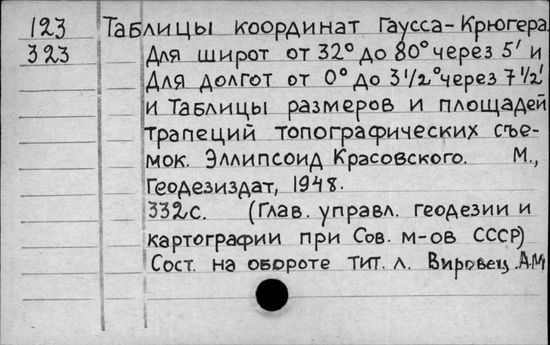 123 Таблицы координат Гаусса-Крюгера
323 Для широт от 32° до 80° через 5' и
Для долгот от 0° до 3 1/2° через 7 1/2'
и Таблицы размеров и площадей
трапеций топографических съе-
мок. Эллипсоид Красовского. М.,
Геодезиздат, 1948.
332с. (Глав. управл. геодезии и
картографии при Сов. м-ов СССР)
Сост. на обороте тит. л. Вировец А.М.